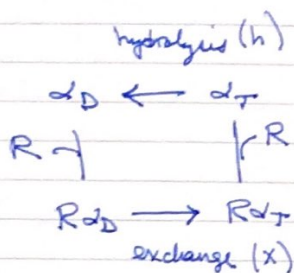 hydrolysis (h)
α_D ← α_T
R R
Rα_D → Rα_T
exchange (x)